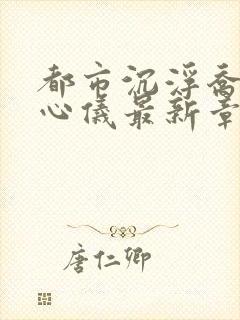 都市沉浮乔
心儀最新章
唐仁卿